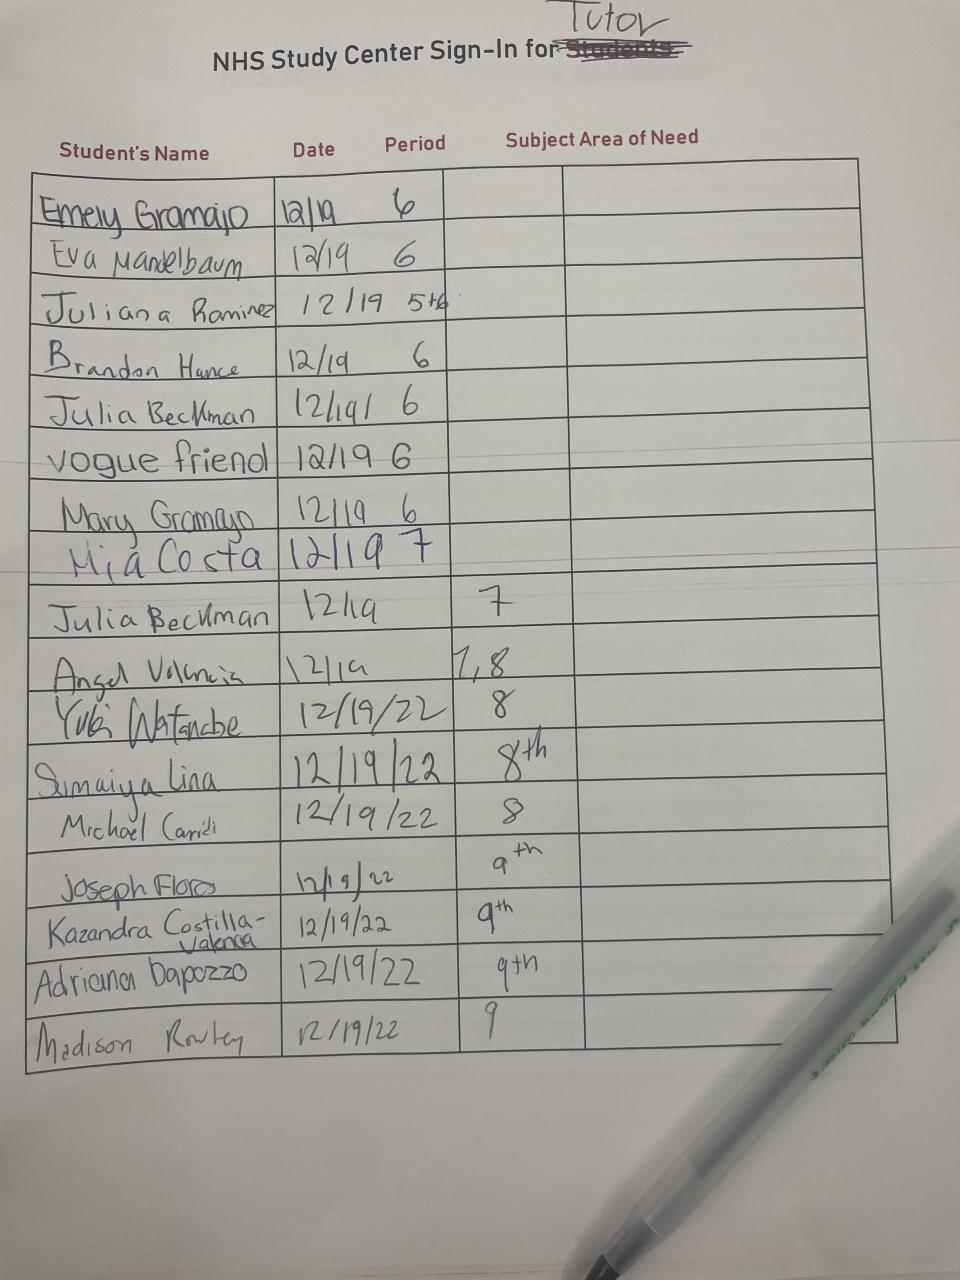 Tutor
NHS Study Center Sign-In for Students
Student's Name Date Period Subject Area of Need
Emely Gramajo 12/19 6
Eva Mandelbaum 12/19 6
Juliana Ramirez 12/19 5+6
Brandon Hance 12/19 6
Julia Beckman 12/19/ 6
vogue friend 12/19 6
Mary Gramajo 12/19 6
Mia Costa 12/19 7
Julia Beckman 12/19 7
Angel Valencia 12/19 7,8
Yuki Watanabe 12/19/22 8
Sumaiya Lina 12/19/22 8th
Michael 12/19/22 8
Joseph Flores 12/19/22 9th
Kazandra Costilla-
Valencia 12/19/22 9th
Adriana Dapozzo 12/19/22 9th
Madison Rowley 12/19/22 9